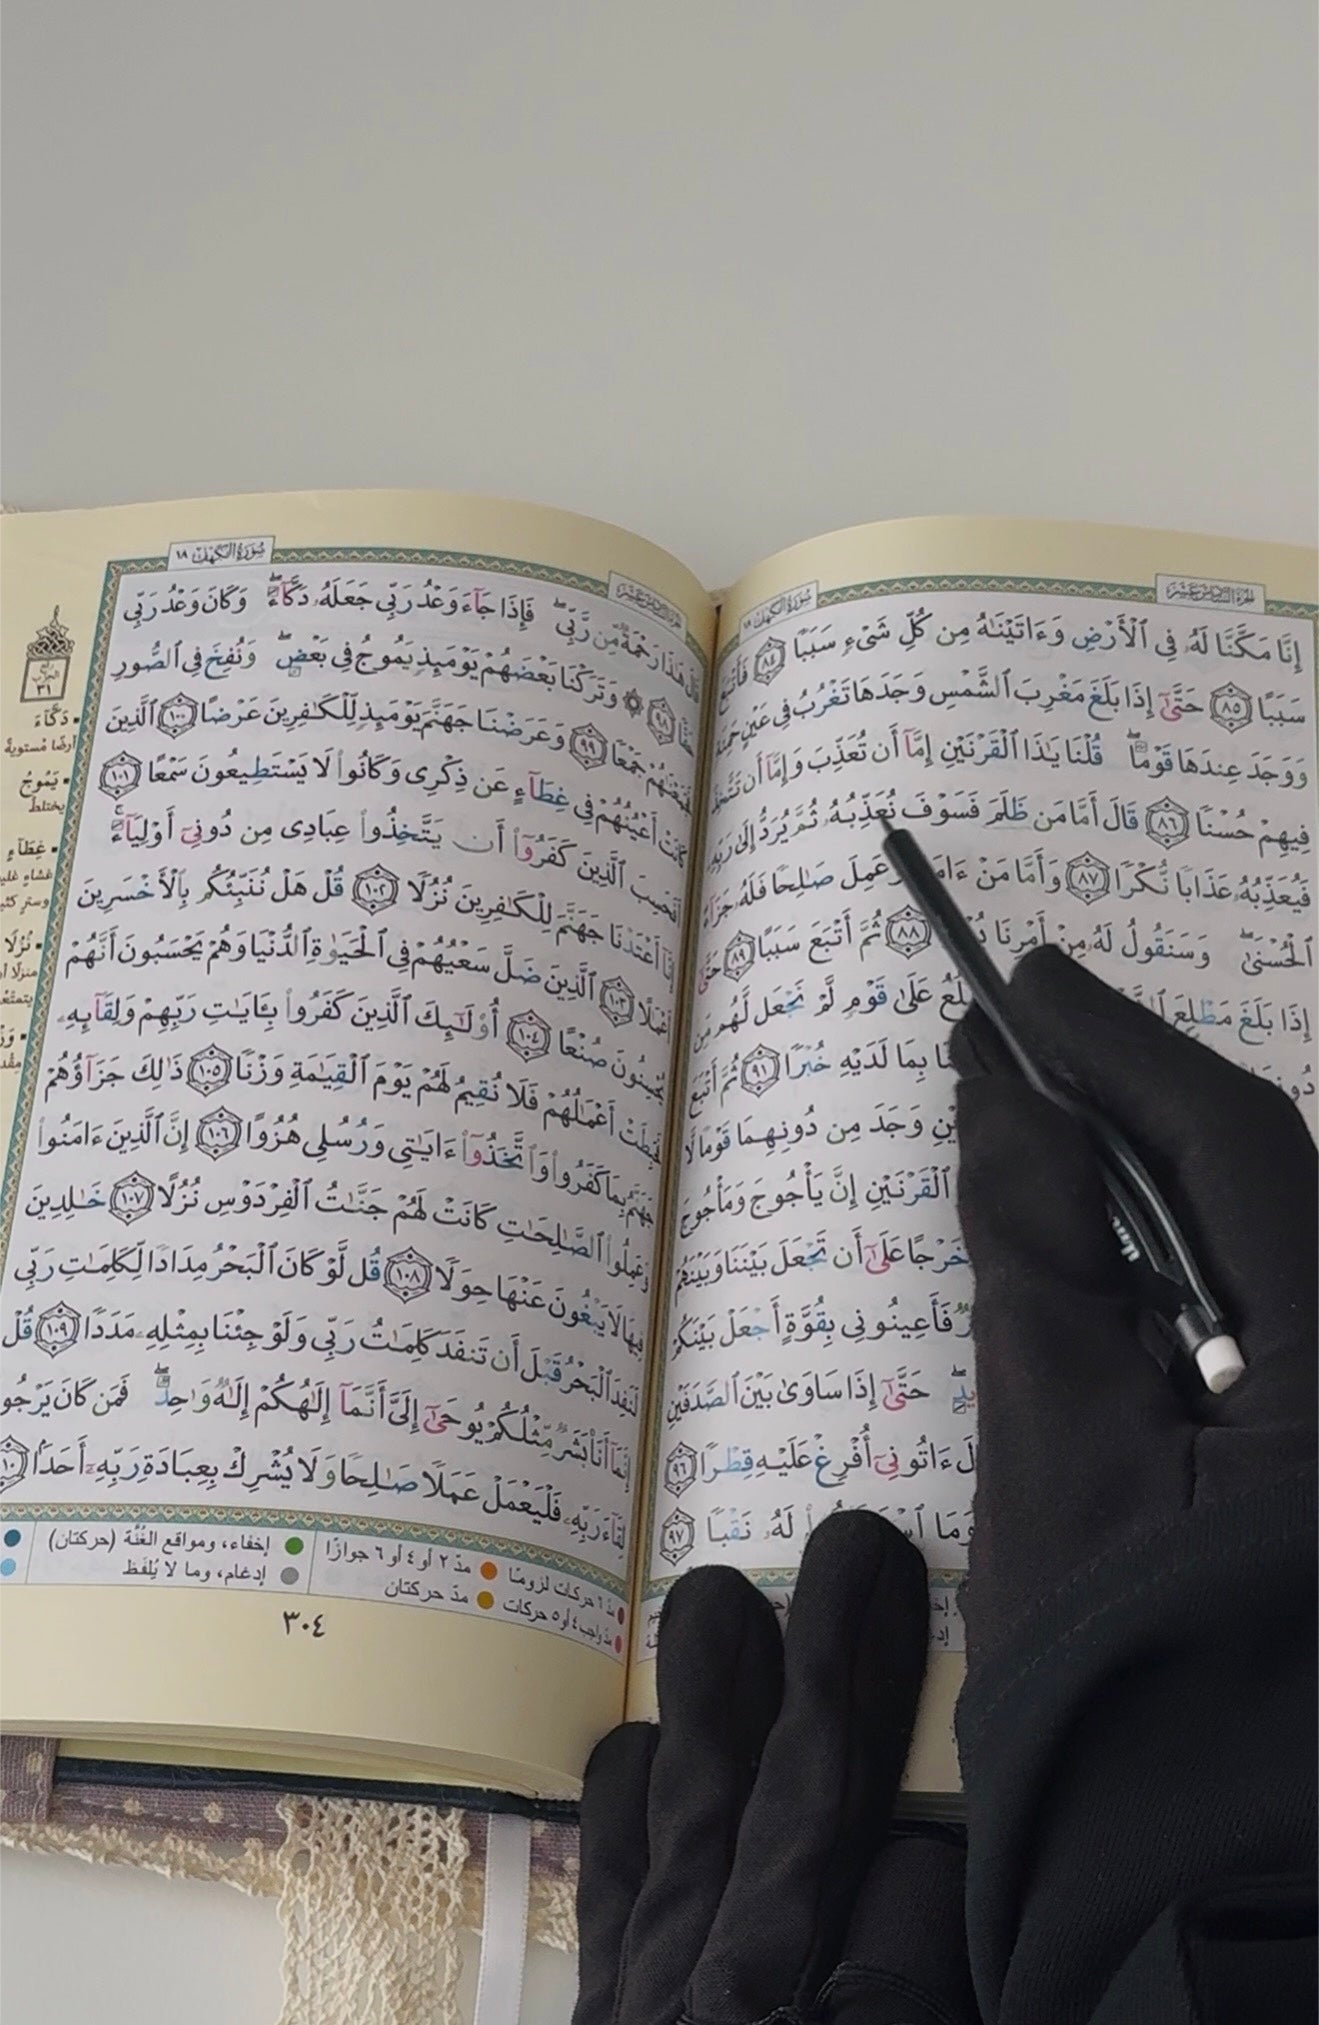 الجزء السادس عشر
سورة الكهف ١٨
إِنَّا مَكَّنَّا لَهُۥ فِى ٱلْأَرْضِ وَءَاتَيْنَٰهُ مِن كُلِّ شَىْءٍ سَبَبًا ٨٤ فَأَتْبَعَ
سَبَبًا ٨٥ حَتَّىٰٓ إِذَا بَلَغَ مَغْرِبَ ٱلشَّمْسِ وَجَدَهَا تَغْرُبُ فِى عَيْنٍ حَمِئَةٍ
وَوَجَدَ عِندَهَا قَوْمًا ۗ قُلْنَا يَٰذَا ٱلْقَرْنَيْنِ إِمَّآ أَن تُعَذِّبَ وَإِمَّآ أَن تَتَّخِذَ
فِيهِمْ حُسْنًا ٨٦ قَالَ أَمَّا مَن ظَلَمَ فَسَوْفَ نُعَذِّبُهُۥ ثُمَّ يُرَدُّ إِلَىٰ رَبِّهِۦ
فَيُعَذِّبُهُۥ عَذَابًا نُّكْرًا ٨٧ وَأَمَّا مَنْ ءَامَنَ وَعَمِلَ صَٰلِحًا فَلَهُۥ جَزَآءً
ٱلْحُسْنَىٰ ۖ وَسَنَقُولُ لَهُۥ مِنْ أَمْرِنَا ٨٨ ثُمَّ أَتْبَعَ سَبَبًا ٨٩ حَتَّىٰٓ
إِذَا بَلَغَ مَطْلِعَ عَلَىٰ قَوْمٍ لَّمْ نَجْعَل لَّهُم مِّن
بِمَا لَدَيْهِ خُبْرًا ٩١ ثُمَّ أَتْبَعَ
وَجَدَ مِن دُونِهِمَا قَوْمًا لَّا
ٱلْقَرْنَيْنِ إِنَّ يَأْجُوجَ وَمَأْجُوجَ
خَرْجًا عَلَىٰٓ أَن تَجْعَلَ بَيْنَنَا وَبَيْنَهُمْ
فَأَعِينُونِى بِقُوَّةٍ أَجْعَلْ بَيْنَكُمْ
حَتَّىٰٓ إِذَا سَاوَىٰ بَيْنَ ٱلصَّدَفَيْنِ
ءَاتُونِىٓ أُفْرِغْ عَلَيْهِ قِطْرًا ٩٦
وَمَا لَهُۥ نَقْبًا ٩٧
الجزء السادس عشر
سورة الكهف ١٨
قَالَ هَٰذَا رَحْمَةٌ مِّن رَّبِّى ۖ فَإِذَا جَآءَ وَعْدُ رَبِّى جَعَلَهُۥ دَكَّآءَ ۖ وَكَانَ وَعْدُ رَبِّى
حَقًّا ٩٨ ۞ وَتَرَكْنَا بَعْضَهُمْ يَوْمَئِذٍ يَمُوجُ فِى بَعْضٍ ۖ وَنُفِخَ فِى ٱلصُّورِ
فَجَمَعْنَٰهُمْ جَمْعًا ٩٩ وَعَرَضْنَا جَهَنَّمَ يَوْمَئِذٍ لِّلْكَٰفِرِينَ عَرْضًا ١٠٠ ٱلَّذِينَ
كَانَتْ أَعْيُنُهُمْ فِى غِطَآءٍ عَن ذِكْرِى وَكَانُوا۟ لَا يَسْتَطِيعُونَ سَمْعًا ١٠١
أَفَحَسِبَ ٱلَّذِينَ كَفَرُوٓا۟ أَن يَتَّخِذُوا۟ عِبَادِى مِن دُونِىٓ أَوْلِيَآءَ ۚ
إِنَّآ أَعْتَدْنَا جَهَنَّمَ لِلْكَٰفِرِينَ نُزُلًا ١٠٢ قُلْ هَلْ نُنَبِّئُكُم بِٱلْأَخْسَرِينَ
أَعْمَٰلًا ١٠٣ ٱلَّذِينَ ضَلَّ سَعْيُهُمْ فِى ٱلْحَيَوٰةِ ٱلدُّنْيَا وَهُمْ يَحْسَبُونَ أَنَّهُمْ
يُحْسِنُونَ صُنْعًا ١٠٤ أُو۟لَٰٓئِكَ ٱلَّذِينَ كَفَرُوا۟ بِـَٔايَٰتِ رَبِّهِمْ وَلِقَآئِهِۦ
فَحَبِطَتْ أَعْمَٰلُهُمْ فَلَا نُقِيمُ لَهُمْ يَوْمَ ٱلْقِيَٰمَةِ وَزْنًا ١٠٥ ذَٰلِكَ جَزَآؤُهُمْ
جَهَنَّمُ بِمَا كَفَرُوا۟ وَٱتَّخَذُوٓا۟ ءَايَٰتِى وَرُسُلِى هُزُوًا ١٠٦ إِنَّ ٱلَّذِينَ ءَامَنُوا۟
وَعَمِلُوا۟ ٱلصَّٰلِحَٰتِ كَانَتْ لَهُمْ جَنَّٰتُ ٱلْفِرْدَوْسِ نُزُلًا ١٠٧ خَٰلِدِينَ
فِيهَا لَا يَبْغُونَ عَنْهَا حِوَلًا ١٠٨ قُل لَّوْ كَانَ ٱلْبَحْرُ مِدَادًا لِّكَلِمَٰتِ رَبِّى
لَنَفِدَ ٱلْبَحْرُ قَبْلَ أَن تَنفَدَ كَلِمَٰتُ رَبِّى وَلَوْ جِئْنَا بِمِثْلِهِۦ مَدَدًا ١٠٩ قُلْ
إِنَّمَآ أَنَا۠ بَشَرٌ مِّثْلُكُمْ يُوحَىٰٓ إِلَىَّ أَنَّمَآ إِلَٰهُكُمْ إِلَٰهٌ وَٰحِدٌ ۖ فَمَن كَانَ يَرْجُوا۟
لِقَآءَ رَبِّهِۦ فَلْيَعْمَلْ عَمَلًا صَٰلِحًا وَلَا يُشْرِكْ بِعِبَادَةِ رَبِّهِۦٓ أَحَدًۢا
٣١
دَكَّآءَ
أرضًا مُستويةً
يَمُوجُ
يختلط
غِطَآءٍ
نُزُلًا
مدّ ٦ حركات لزومًا مدّ ٢ أو ٤ أو ٦ جوازًا
مدّ واجب ٤ أو ٥ حركات مدّ حركتان
إخفاء، ومواقع الغُنَّة (حركتان)
إدغام، وما لا يُلفَظ
٣٠٤